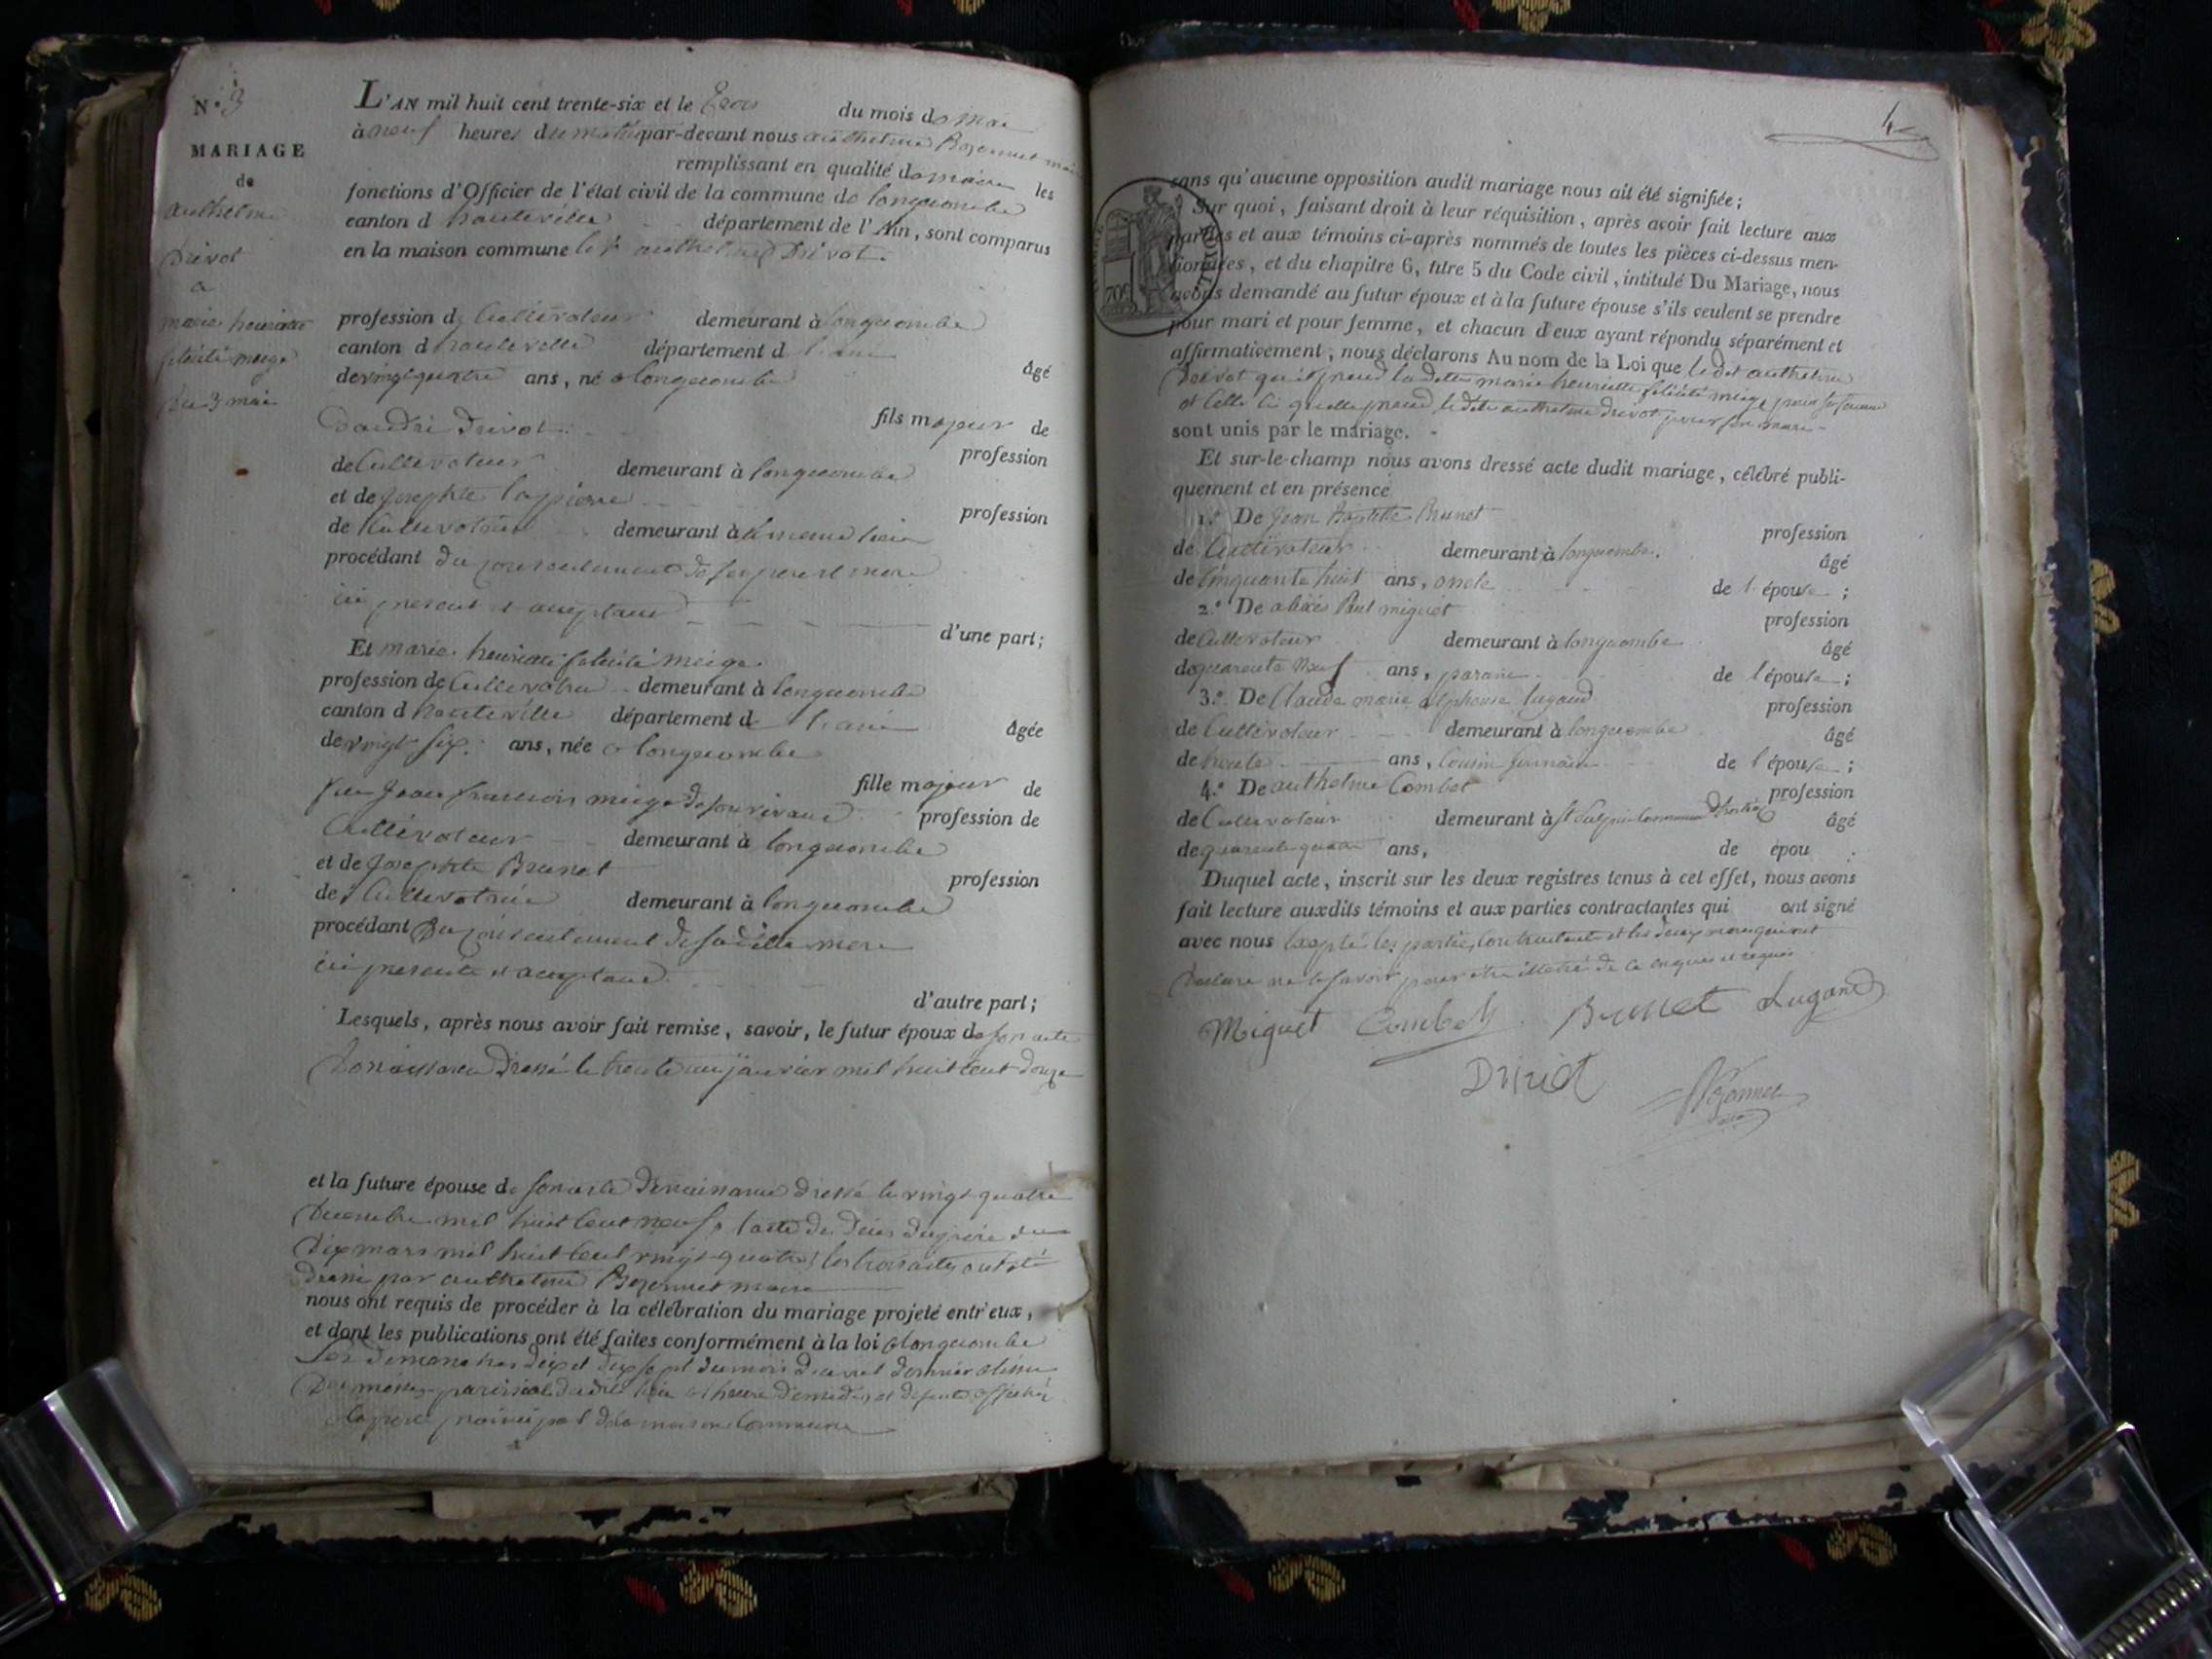 N.° 3
MARIAGE
de
authelme
Drivot
a
marie henriette
félicité meige
du 3 mai
L'AN mil huit cent trente-six et le trois du mois de mai
à neuf heures du matin par-devant nous authelme Bozonnet maire
remplissant en qualité de maire les
fonctions d'Officier de l'état civil de la commune de longecombe
canton d hauteville département de l'Ain, sont comparus
en la maison commune le s.r authelme Drivot.
profession de Cultivateur demeurant à longecombe
canton d hauteville département d
âgé
de vingt quatre ans, né a longecombe
fils majeur de
D'andré Drivot
profession
de Cultivateur demeurant à longecombe
et de Josephte lapierre
profession
de Cultivatrice demeurant à
procédant du consentement de ses pere et mere
ici présent et acceptant
d'une part;
Et marie henriette félicité meige
profession de Cultivatrice demeurant à longecombe
canton d hauteville département d
âgée
de vingt six ans, née a longecombe
fille majeur de
feu Jean francois meige de son vivant profession de
Cultivateur demeurant à longecombe
et de Josephte Brunet
profession
de Cultivatrice demeurant à longecombe
procédant Du consentement de sa dite mere
ici présente et acceptant
d'autre part;
Lesquels, après nous avoir fait remise, savoir, le futur époux de son acte
de naissance Dressé le trente un janvier mil huit cent douze
et la future épouse de son acte De naissance dressé le vingt quatre
Decembre mil huit cent neuf, l'acte de décès du père du
dix mars mil huit cent vingt quatre les trois actes ont été
dressé par authelme Bozonnet maire
nous ont requis de procéder à la célébration du mariage projeté entr'eux,
et dont les publications ont été faites conformément à la loi a longecombe
Les Dimanches dix et dix sept du mois d'avril dernier a l'issue
Des messes paroissiale dudit lieu et heure de midi, et de suite affiché
a la porte principal de la maison Commune
4
sans qu'aucune opposition audit mariage nous ait été signifiée;
Sur quoi, faisant droit à leur réquisition, après avoir fait lecture aux
parties et aux témoins ci-après nommés de toutes les pièces ci-dessus men-
tionnées, et du chapitre 6, titre 5 du Code civil, intitulé Du Mariage, nous
avons demandé au futur époux et à la future épouse s'ils veulent se prendre
pour mari et pour femme, et chacun d'eux ayant répondu séparément et
affirmativement, nous déclarons Au nom de la Loi que ledit authelme
Drivot qu'il prend la dite marie henriette félicité meige pour sa femme
et celle ci quelle prend le dit authelme drivot pour son mari
sont unis par le mariage.
Et sur-le-champ nous avons dressé acte dudit mariage, célébré publi-
quement et en présence
1.° De Jean Baptiste Brunet
profession
de Cultivateur demeurant à longecombe.
âgé
de Cinquante huit ans, oncle de l'épouse;
2.° De alixis Paul miguet
profession
de Cultivateur demeurant à longecombe
âgé
de quarente neuf ans, parain de l'épouse;
3.° De Claude marie alphonse lugand
profession
de Cultivateur demeurant à longecombe
âgé
de trente ans, Cousin germain de l'épouse;
4.° De authelme Combet
profession
de Cultivateur demeurant à st Sulpice Commune
âgé
de quarente quatre ans, de épou
Duquel acte, inscrit sur les deux registres tenus à cet effet, nous avons
fait lecture auxdits témoins et aux parties contractantes qui ont signé
avec nous Excepté les parties Contractant et les deux meres qui ont
Declare ne le savoir pour être illetré de ce enquis et requis.
Miguet Combet Brunet Lugand
Drivot
Bozonnet